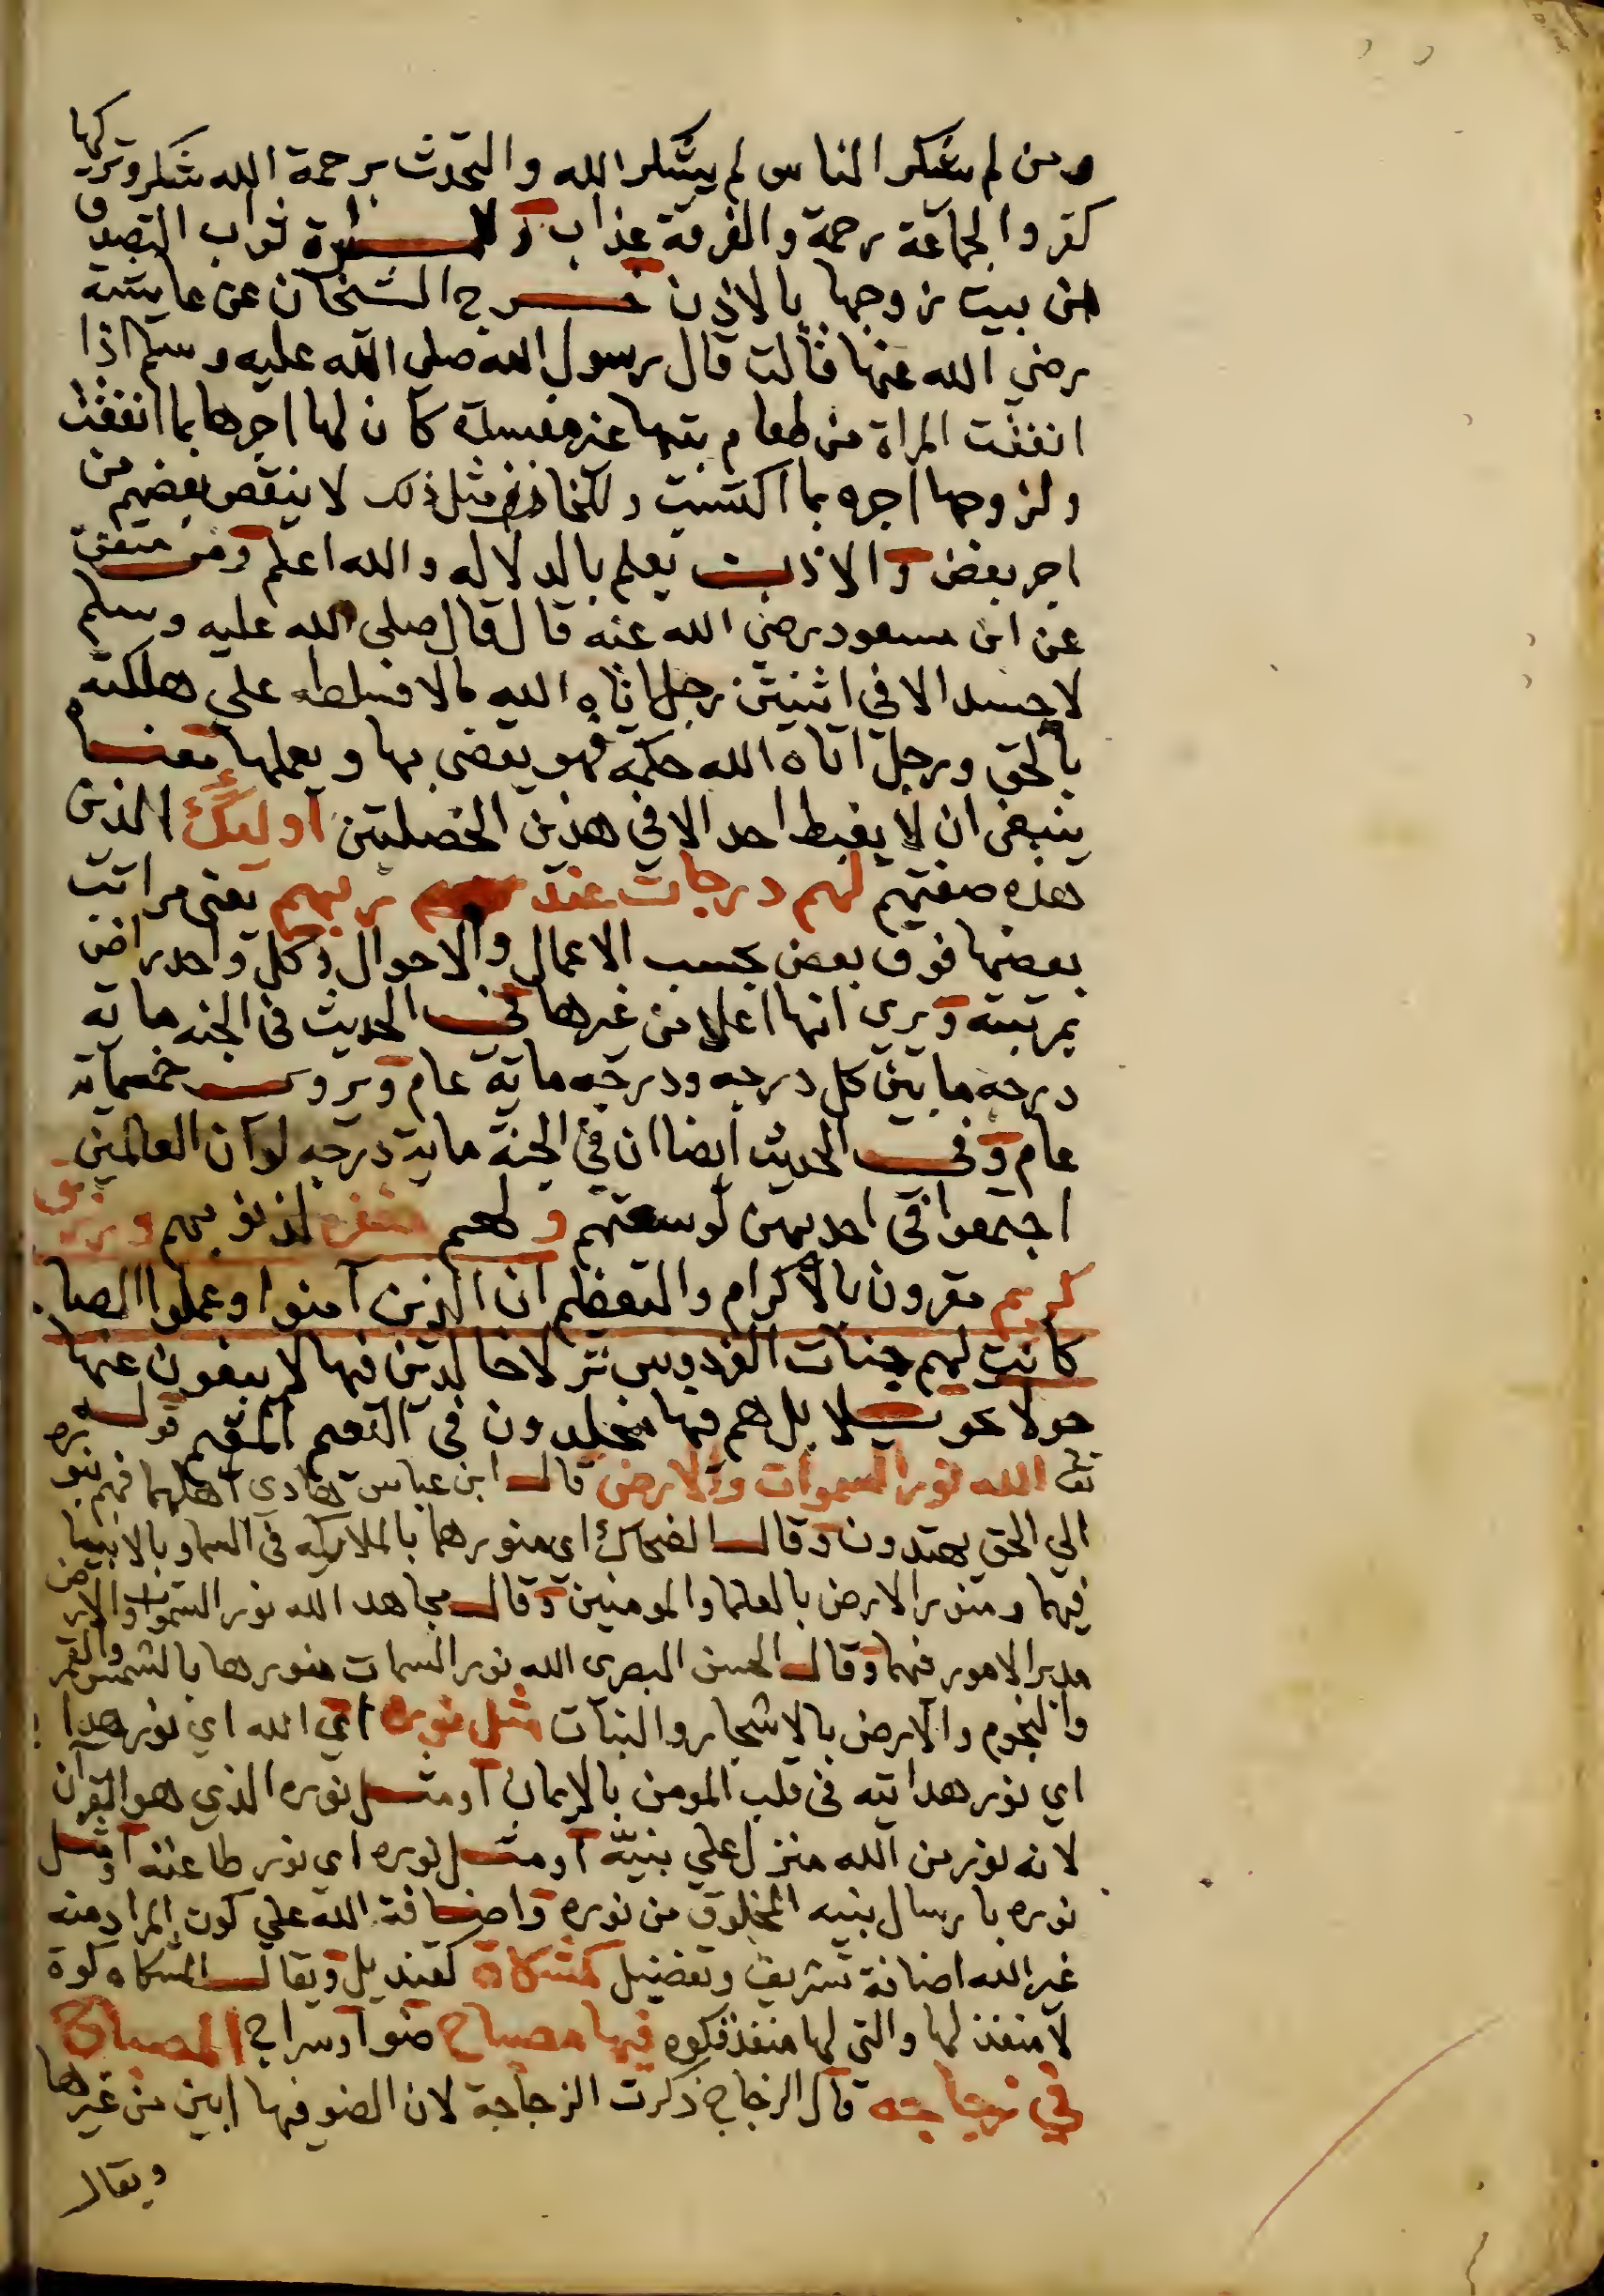 ومن لم يشكر الناس لم يشكر الله والتحدث برحمة الله شكر وتركها
كفر والجماعة رحمة والفرقة عذاب وللمراة ثواب التصدق
من بيت زوجها بالاذن خرج الشيخان عن عايشة
رضي الله عنها قالت قال رسول الله صلى الله عليه وسلم اذا
انفقت المراة من طعام بيتها غير مفسدة كان لها اجرها بما انفقت
ولزوجها اجره بما اكتسبت وللخازن مثل ذلك لا ينقص بعضهم من
اجر بعض والاذن يعلم بالدلاله والله اعلم ومن متفق
عن ابن مسعود رضي الله عنه قال قال صلى الله عليه وسلم
لا حسد الا في اثنتين رجل اتاه الله مالا فسلطه علي هلكته
بالحق ورجل اتاه الله حكمة فهو يقضي بها ويعلمها معناه
ينبغي ان لا يغبط احد الا في هذين الخصلتين اوليك الذين
هذه صفتهم لهم درجات عند ربهم يعني مراتب
بعضها فوق بعض بحسب الاعمال والاحوال وكل واحد راض
بمرتبته ويرى انها اعلا من غيرها في الحديث في الجنه ماية
درجه ما بين كل درجه ودرجه ماية عام ويروى خمسماية
عام وفي الحديث ايضا ان في الجنة ماية درجه لو ان العالمين
اجتمعوا في احديهن لوسعتهم ولهم مغفرة لذنوبهم ورزق
كريم مقرون بالاكرام والتعظيم ان الذين آمنوا وعملوا الصا
كانت لهم جنات الفردوس نزلا خالدين فيها لا يبغون عنها
حولا تحويلا بل هم فيها مخلدون في النعيم المقيم قوله
تعالى الله نور السموات والارض قال ابن عباس هادي اهلهما فهم بنوره
الي الحق يهتدون وقال الضحاك اي منورهما بالملايكه في السما وبالانبيا
فيهما ومنور الارض بالعلما والمومنين وقال مجاهد الله نور السموات والارض
مدبر الامور فيهما وقال الحسن البصرى الله نور السمات منورها بالشمس والقمر
والنجوم والارض بالاشجار والنبات مثل نوره اي الله اي نور هدا
اي نور هدايته في قلب المومن بالايمان او مثل نوره الذي هو القرآن
لانه نور من الله منزل علي نبيه او مثل نوره اي نور طاعته او مثل
نوره بارسال نبيه المخلوق من نوره واضافة الله علي كون المراد منه
غير الله اضافة تشريف وتفضيل كمشكاة كقنديل ويقال المشكاه كوة
لا منفذ لها والتي لها منفذ فكوه فيها مصباح ضوا وسراج المصباح
في زجاجه قال الزجاج ذكرت الزجاجة لان الضو فيها ابين من غيرها
ويقال